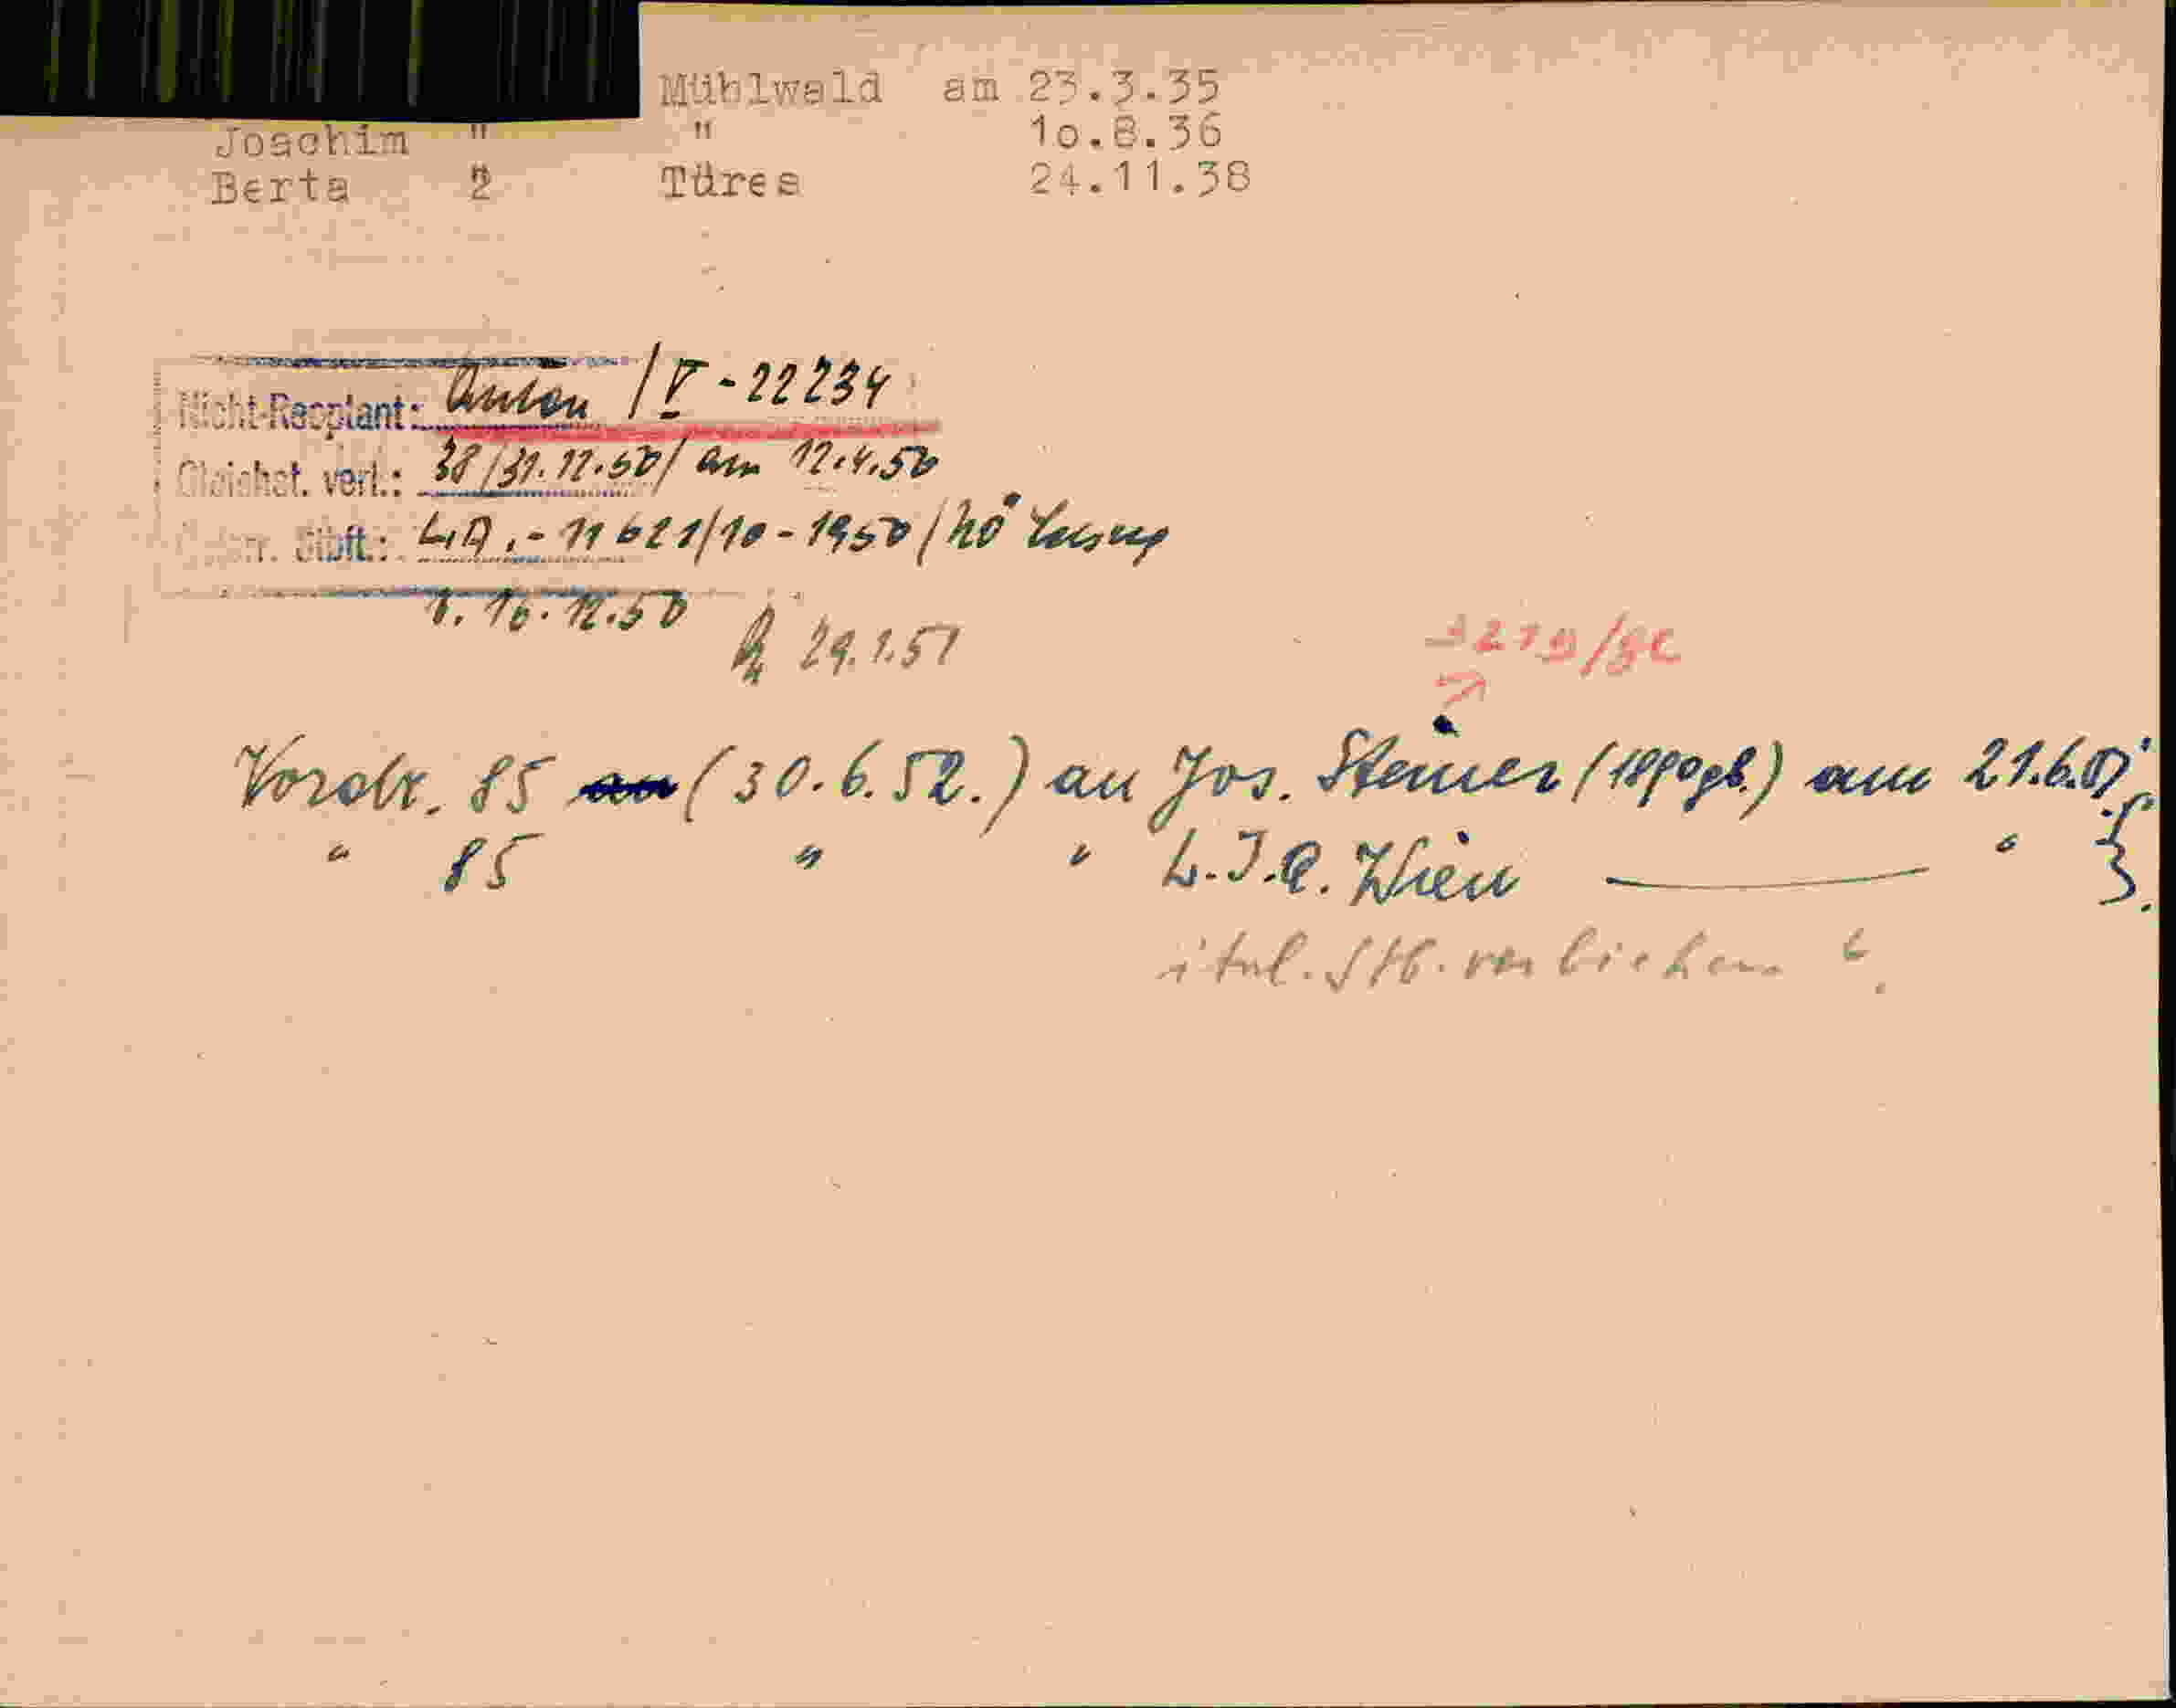 Mühlwald am 23.3.35
Joachim " " 10.8.36
Berta 2 Türes 24.11.38
Nicht-Reoptant: Anton / V - 22234
Gleichst. verl.: 38/31.12.50/ am 12.4.50
Stbft.: L.A. - 11621/10-1950/NÖ
v. 16.12.50
29.1.51
Vordr. 85 (30.6.52.) an Jos. Steiner (1890 gb.) am 21.6.51
" 85 " " L.I.A. Wien "
ital. Stb.